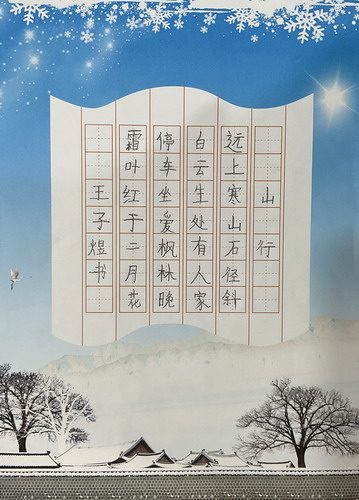 山行
远上寒山石径斜
白云生处有人家
停车坐爱枫林晚
霜叶红于二月花
王子煜书